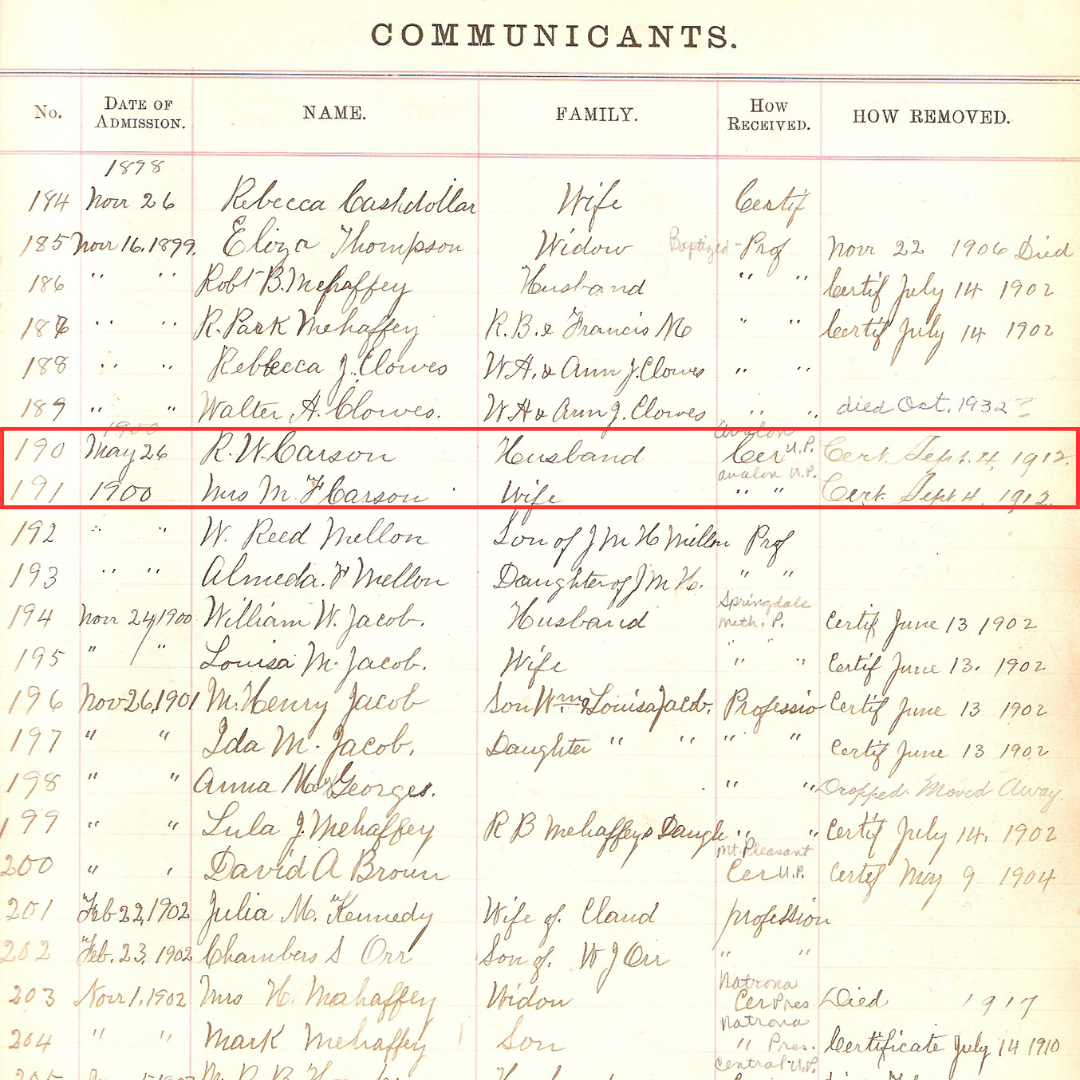 COMMUNICANTS.
No. DATE OF ADMISSION. NAME. FAMILY. HOW RECEIVED. HOW REMOVED.
1898
184 Novr 26 Rebecca Cashdollar Wife Certif
185 Novr 16, 1899. Eliza Thompson Widow Baptized - Prof Novr 22 1906 Died
186 " " Robt B. Mehaffey Husband " " Certif July 14 1902
187 " " R. Park Mehaffey R. B. & Francis M " " Certif July 14 1902
188 " " Rebbecca J. Clowes W A. & Ann J. Clowes " "
189 " " Walter A. Clowes. W A & Ann J. Clowes " " died Oct. 1932 ?
1900 Avalon
190 May 26 R. W. Carson Husband Cer U.P. Cert. Sept. 4, 1912.
Avalon U.P.
191 1900 Mrs M. F Carson Wife " " Cert. Sept. 4, 1912.
192 " " W. Reed Mellon Son of J M H Mellon Prof
193 " " Almeda. F Mellon Daughter of J M H. " "
194 Novr 24, 1900 William W. Jacob. Husband Springdale Meth. P. Certif June 13 1902
195 " " Louisa M. Jacob. Wife " " Certif June 13. 1902
196 Nov 26, 1901 M. Henry Jacob Son Wm & Louisa Jacob. Professio Certif June 13 1902
197 " " Ida M. Jacob. Daughter " " " " Certif June 13 1902
198 " " Anna Georges. " " Dropped. Moved Away.
199 " " Lula J. Mehaffey R B Mehaffeys Daugh " " Certif July 14. 1902
Mt. Pleasant
200 " " David A Brown Cer U.P. Certif May 9 1904
201 Feb 22, 1902 Julia M. Kennedy Wife of. Claud profession
202 Feb. 23. 1902 Chambers S Orr Son of. W J Orr " "
Natrona
203 Novr 1, 1902 Mrs H. Mahaffey Widow Cer Pres Died 1917
Natrona
204 " " Mark Mehaffey Son " Pres. Certificate July 14 1910
Central U.P.
205